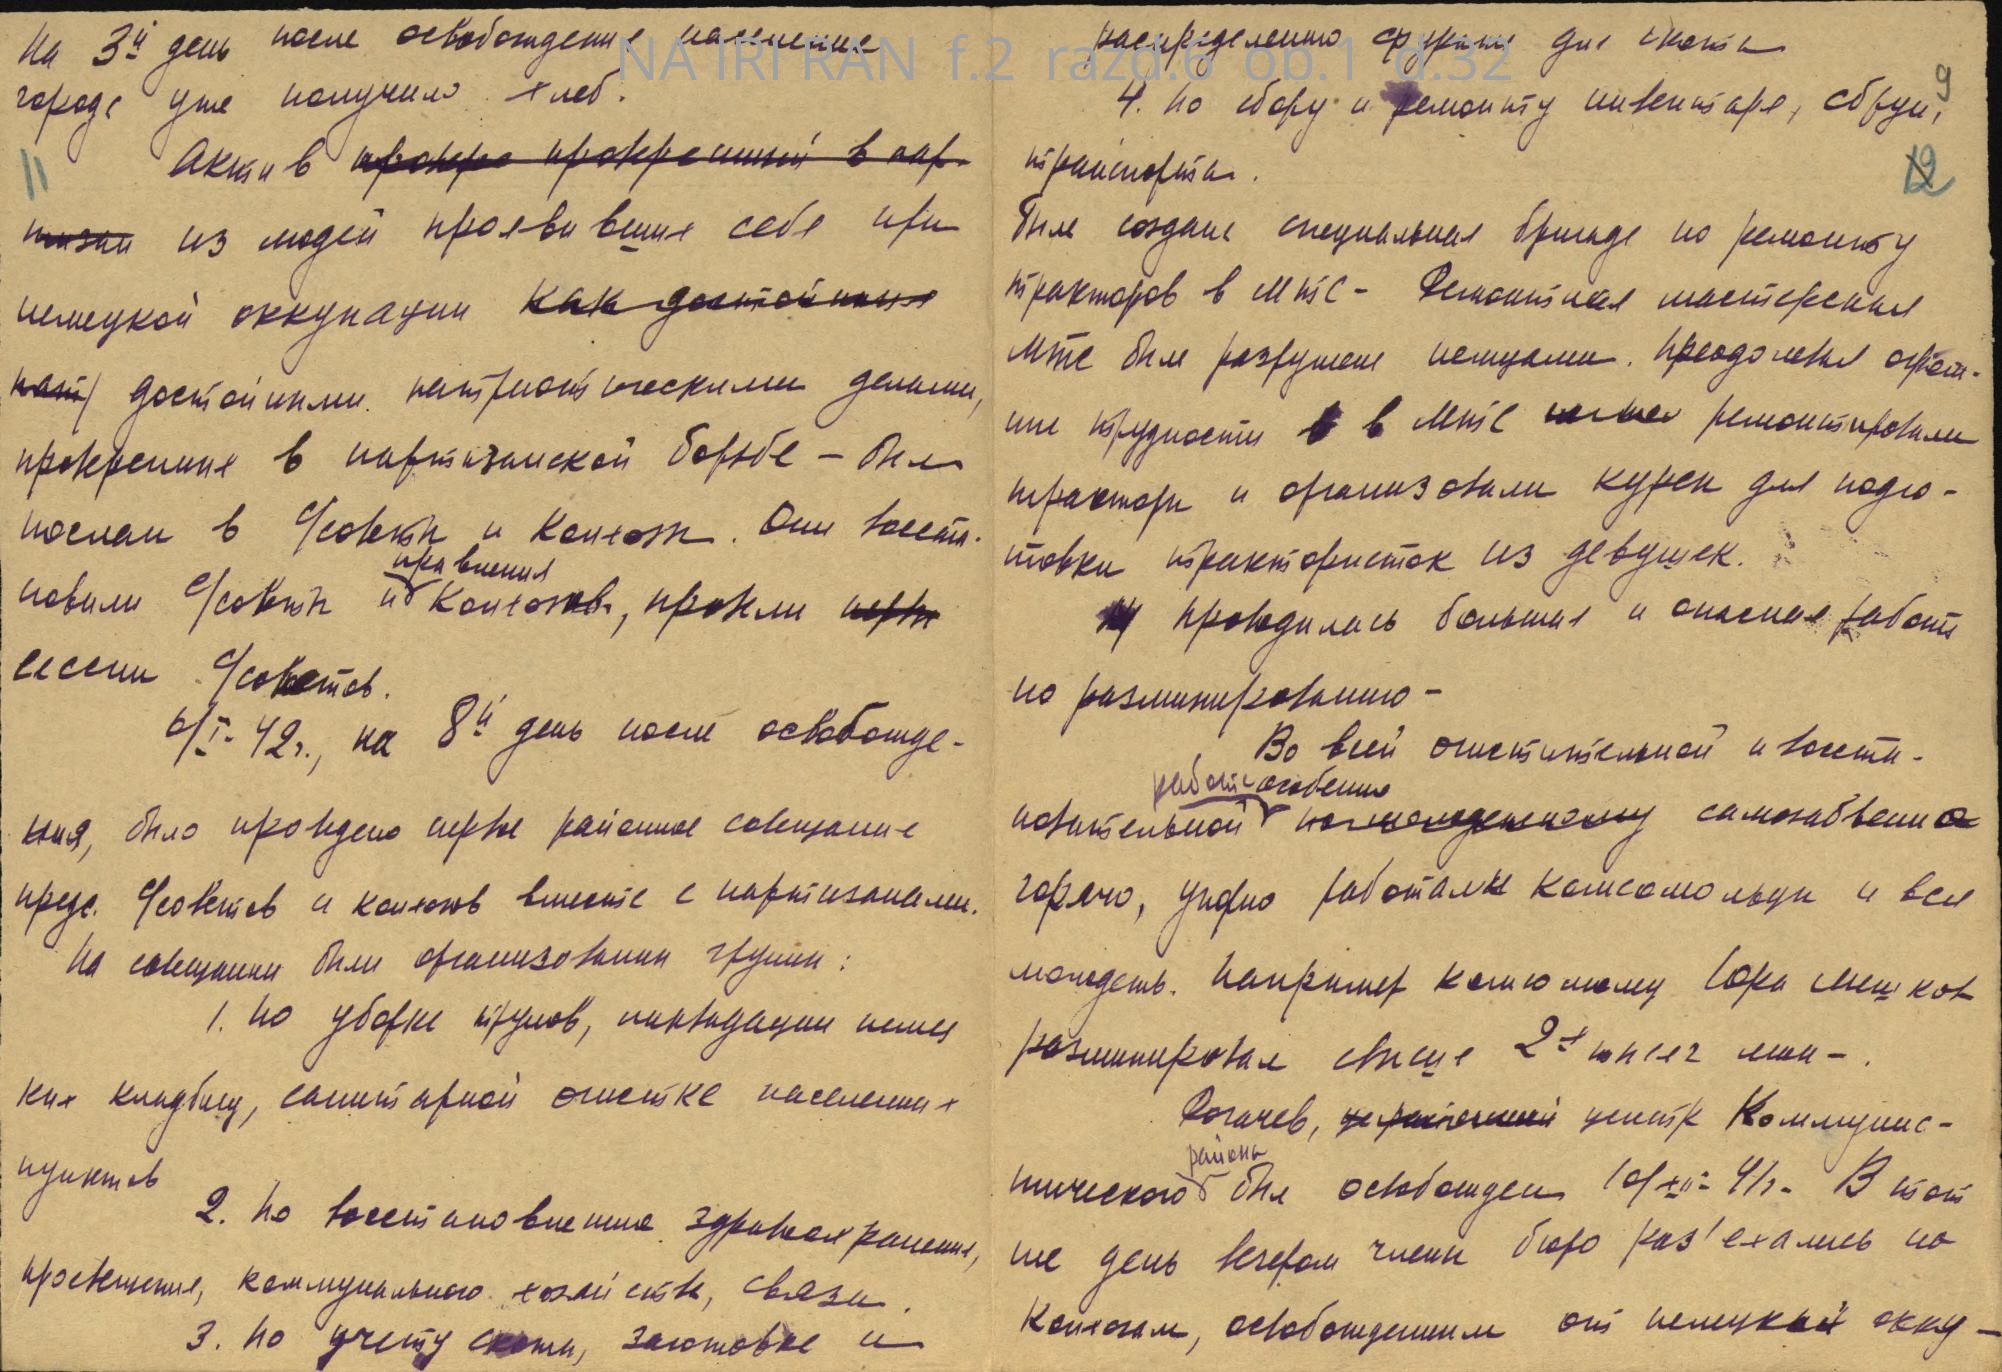 NA IRI RAN f.2 razd.6 op.1 d.32
На 3й день после освобождения население
города уже получило хлеб.
11
Актив провере проверенный в пар-
тизан из людей проявивших себя при
немецкой оккупации как достойных
пат достойными патриотическими делами,
проверенных в партизанской борьбе – был
послан в с/советы и колхозы. Они восста-
правления
новили с/советы и колхозов, провели перв
сессии с/советов.
6/I-42г., на 8й день после освобожде-
ния, было проведено первое районное совещание
предс. с/советов и колхозов вместе с партизанами.
На совещании были организованы группы:
1. По уборке трупов, ликвидации немец
ких кладбищ, санитарной очистке населенных
пунктов
2. По восстановлению здравоохранения,
просвещения, коммунального хозяйства, связи.
3. По учету скота, заготовке и
распределению фуража для скота
9
4. По сбору и ремонту инвентаря, сбруи,
транспорта.
12
Была создана специальная бригада по ремонту
тракторов в МТС – Ремонтная мастерская
МТС была разрушена немцами. Преодолевая огром-
ные трудности в МТС ремонтировали
трактора и организовали курсы для подго-
товки трактористок из девушек.
Проводилась большая и опасная работа
по разминированию –
Во всей очистительной и восста-
работе особенно
новительной по-молодежному самозабвенно
горячо, упорно работали комсомольцы и вся
молодежь. Например комсомолец Юра Мешков
разминировал свыше 2х тысяч мин – .
Рогачев, центр Коммунис-
района
тического был освобожден 10/XII-41г. В тот
же день вечером члены бюро раз'ехались по
колхозам, освобожденным от немецкой окку-